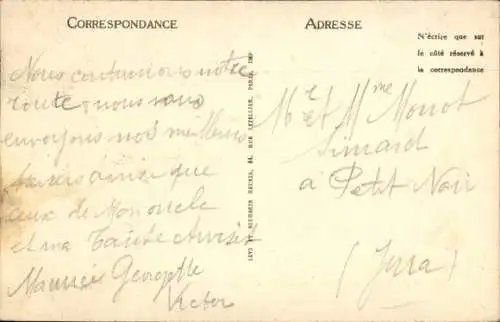 CORRESPONDANCE
ADRESSE
N'écrire que sur
le côté réservé à
la correspondance
Nous continuons notre
route, nous vous
envoyons nos meilleurs
baisers ainsi que
ceux de Mon oncle
et ma Tante
Maurice Georgette
Victor
LEVY ET NEURDEIN RÉUNIS, 44, RUE LETELLIER, PARIS, IMP
Mr et Mme Monot
Simard
à Petit Noir
(Jura)